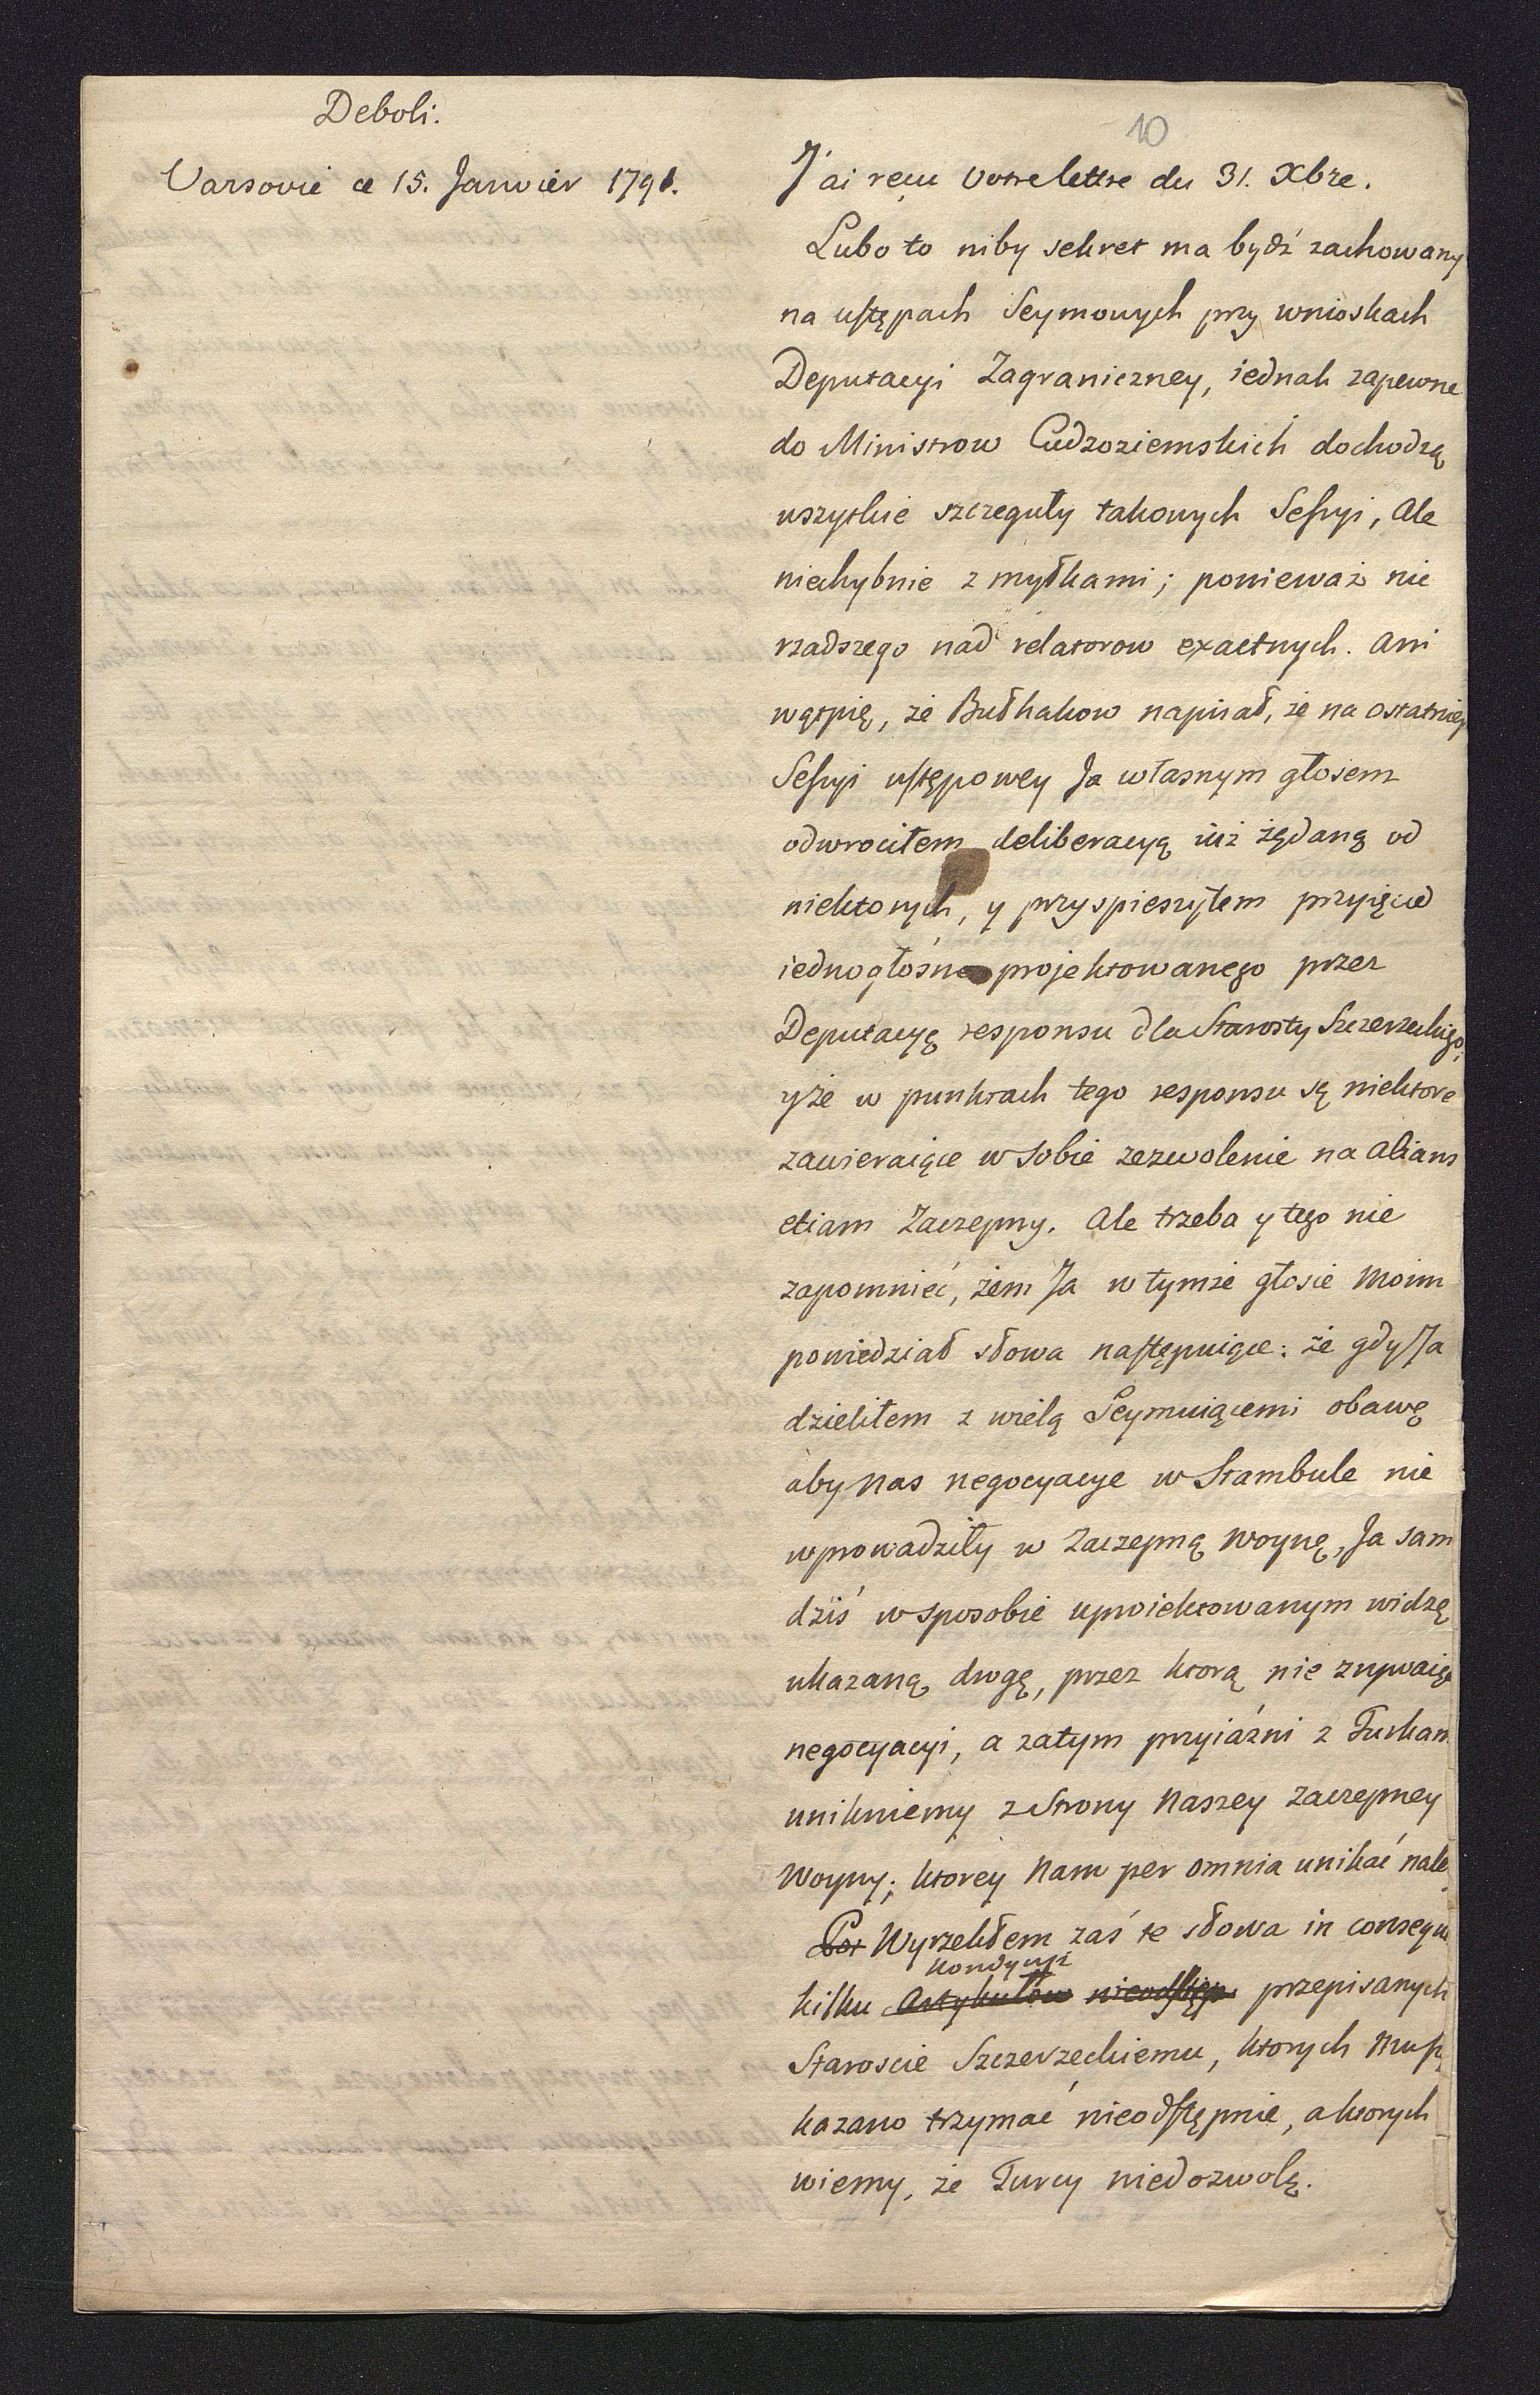 Deboli.
10
Varsovie ce 15. Janvier 1791.
J'ai reçu votre lettre du 31. Xbre.
Lubo to niby sekret ma bydź zachowany
na ustępach Seymowych przy wnioskach
Deputacyi Zagraniczney, iednak zapewne
do Ministrow Cudzoziemskich dochodzą
wszytkie szczeguły takowych Sessyi, Ale
niechybnie z myłkami; ponieważ nic
rzadszego nad relatorow exactnych. Ani
wątpię, że Bułhakow napisał, że na ostatniey
Sessyi ustępowey Ja własnym głosem
odwrociłem deliberacyą iuż żądaną od
niektorych, y przyspieszyłem przyięcie
iednogłośne projektowanego przez
Deputacyę responsu dla Starosty Szczerzeckiego;
y że w punktach tego responsu są niektore
zawieraiące w sobie zezwolenie na Alians
etiam Zaczepny. Ale trzeba y tego nie
zapomnieć, żem Ja w tymże głosie moim
powiedział słowa następuiące: że gdy Ja
dzieliłem z wielą Seymuiącemi obawę
aby Nas negocyacye w Stambule nie
wprowadziły w Zaczepną Woynę, Ja sam
dziś w sposobie uproiektowanym widzę
ukazaną drogę, przez ktorą nie zrywaiąc
negocyacyi, a zatym przyiaźni z Turkam
unikniemy z Strony Naszey Zaczepney
Woyny; ktorey Nam per omnia unikać nale
Wyrzekłem zaś te słowa in consequ
kondycyi
kilku Artykułow nieodstęp przepisanych
Staroscie Szczerzeckiemu, ktorych Mu się
kazano trzymać nieodstępnie, a ktorych
wiemy, że Turcy niedozwolą.